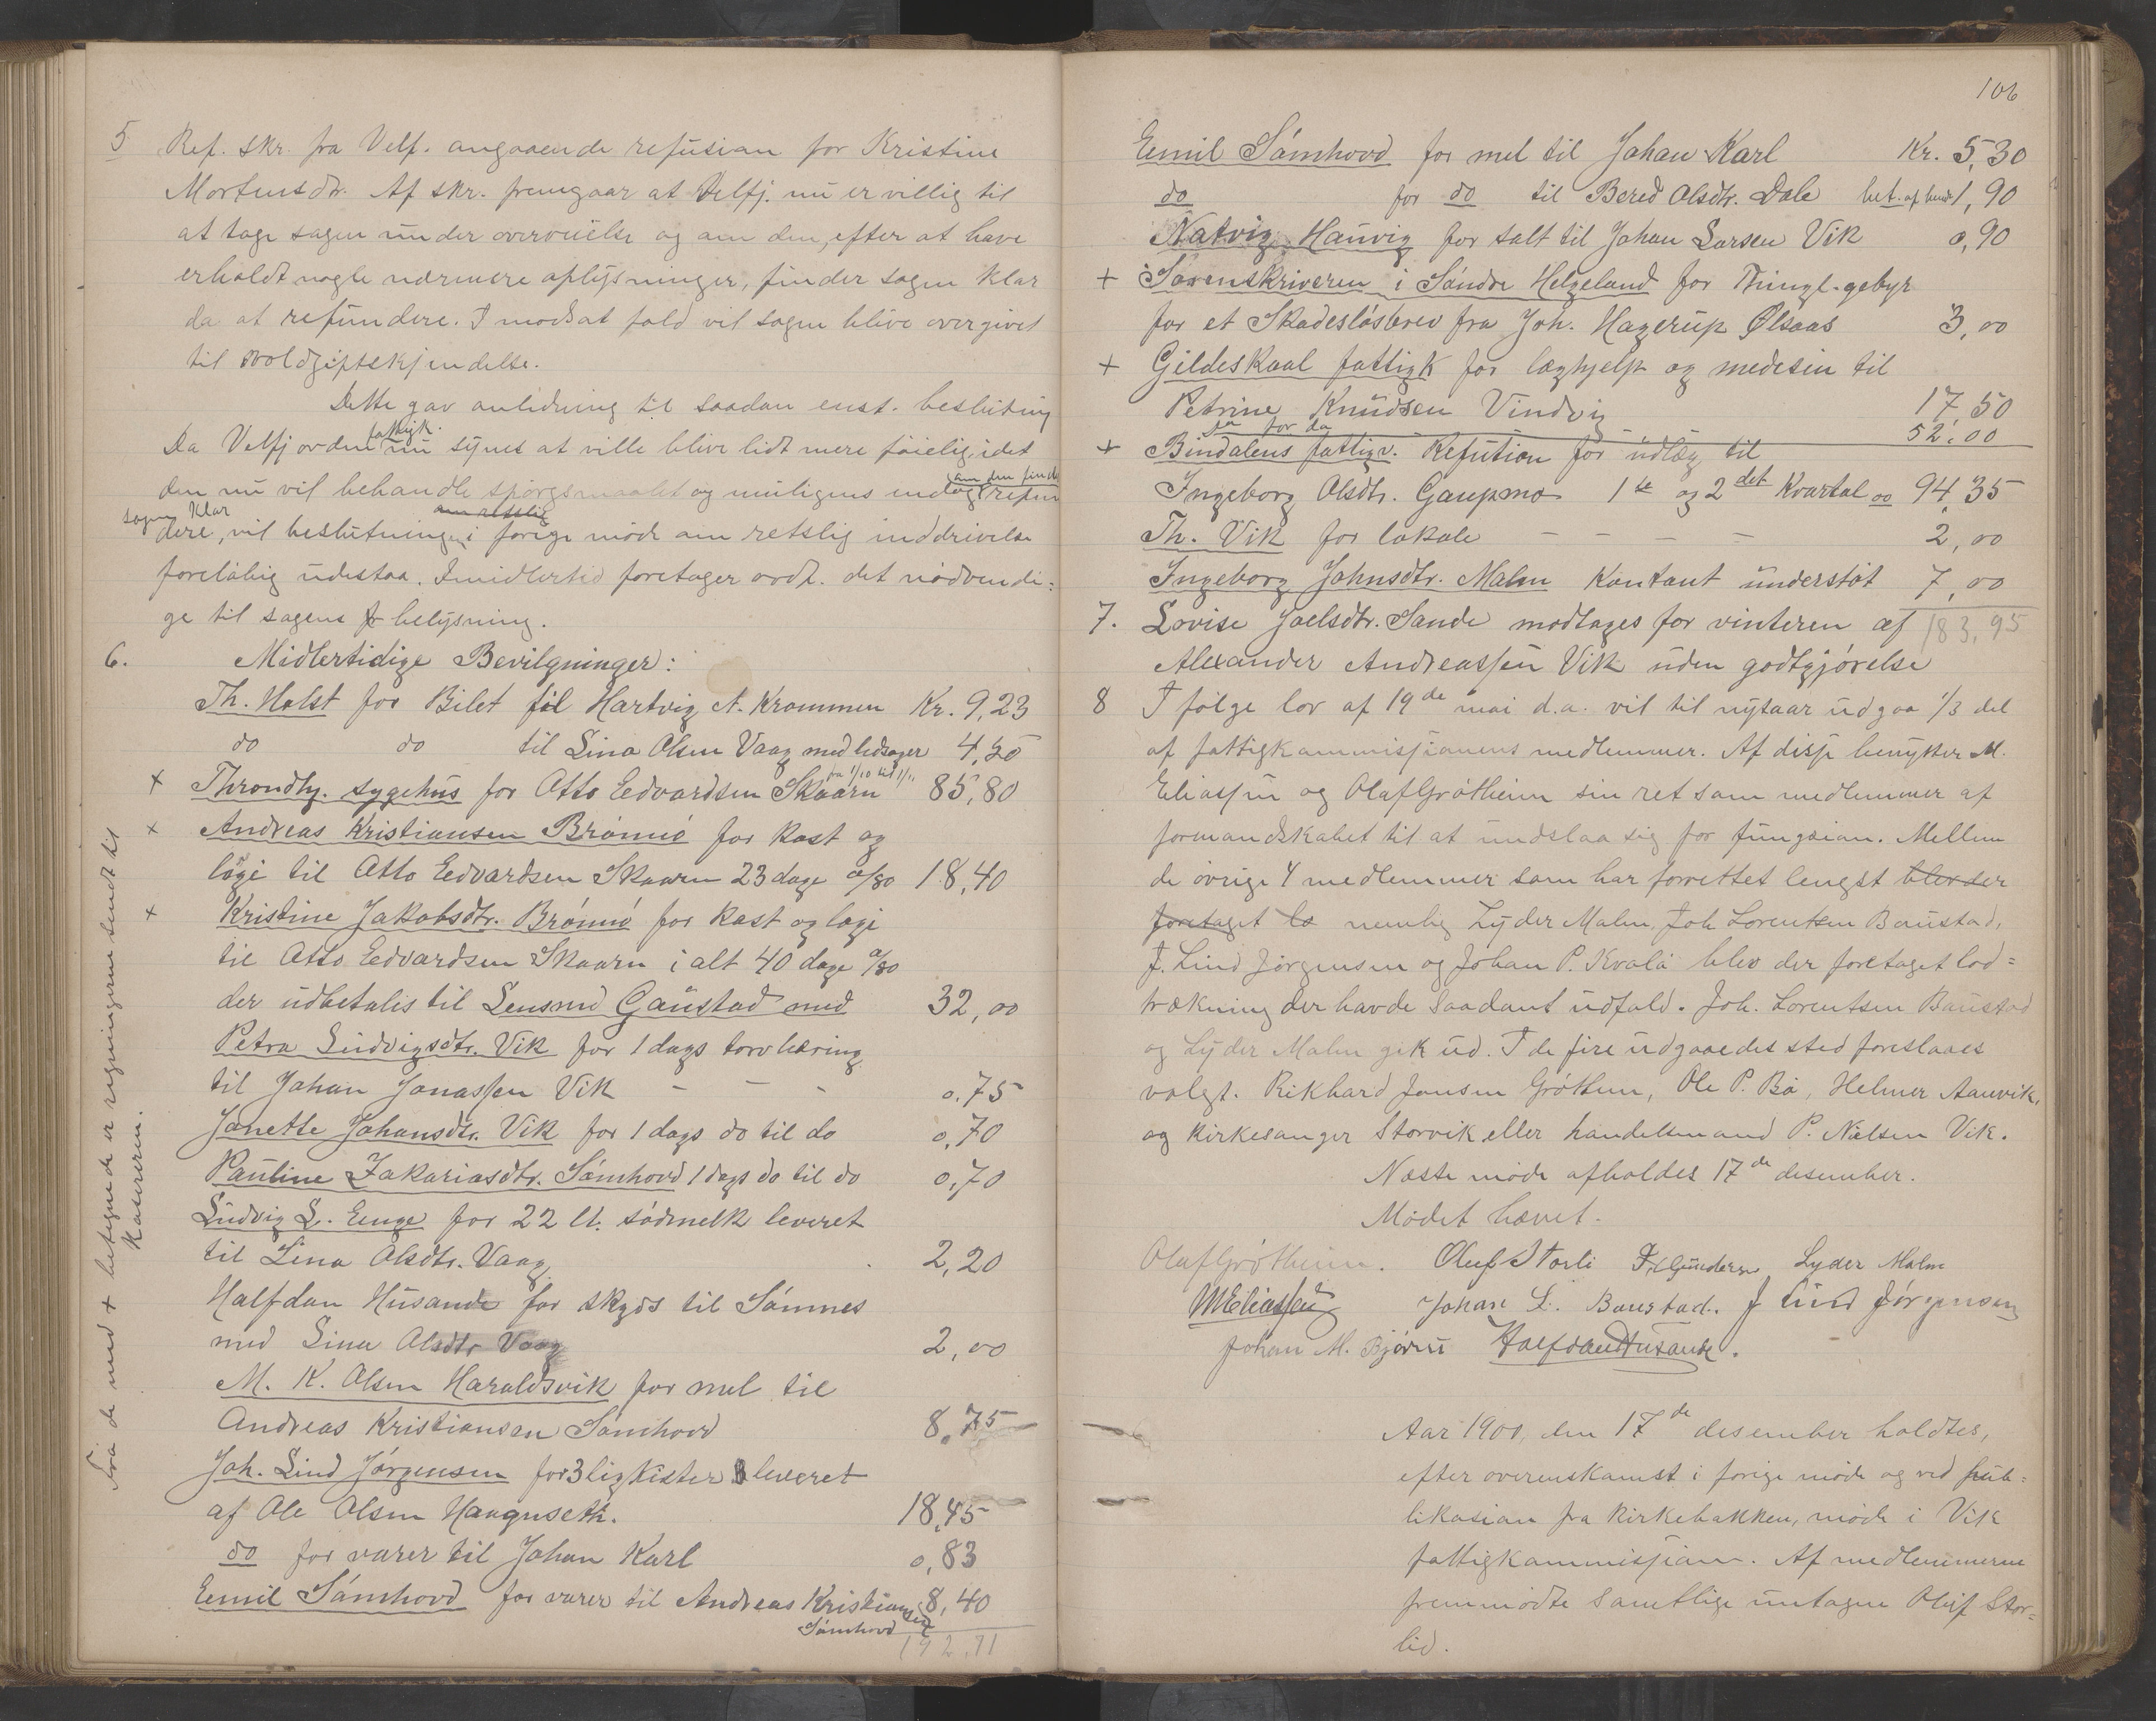 5 Ref. skr. fra Velf. angaaende refusian for Kristine
Mortensdtr. Af skr. fremgaar at Velfj. nu er villig til
at tage sagen under overveielse og om den, efter at have
erholdt nogle nærmere oplysninger, finder sagen klar
da at refundere. I modsat fald vil sagen blive overgivet
til voldgiftskjendelse.
Dette gav anledning til saadan enst. beslutning
Da Velfjorden fattigk. nu synes at ville blive lidt mere føielig, idet
den nu vil behandle spørgsmaalet og muligens endog om den finder refun
sagen klar
dere, vil beslutningen i forige møde om retslig inddrivelse
foreløbig udestaa. Imidlertid foretager ordf. det nødvendi-
ge til sagens belysning.
6. Midlertidige Bevilgninger:
Th. Holst for Bilet til Hartvig A. Krommen Kr. 9,23
do do til Lina Olsen Vaag med ledsager 4,50
+ Throndhj. sygehus for Otto Edvardsen Skaarn fra 1/10 til 1/11 85,80
+ Andreas Kristiansen Brømnø for kost og
logi til Otto Edvardsen Skaarn 23 dage a/80 18,40
+ Kristine Jakobsdtr. Brømnø for kost og logi
til Otto Edvardsen Skaarn i alt 40 dage a/80
der udbetalis til Lensmd Gaustad med 32,00
Petra Ludvigsdtr. Vik for 1 dags torvbæring
til Johan Jonassen Vik - - - 0.75
Janette Johansdtr. Vik for 1 dags do til do 0,70
Pauline Zakariasdtr. Sømhovd 1 dags do til do 0,70
Ludvig L. Enge for 22 lt. sødmelk leveret
til Lina Olsdtr. Vaag 2,20
Halfdan Husande for skyds til Sømnes
med Lina Olsdtr Vaag 2,00
M. K. Olsen Haraldsvik for mel til
Andreas Kristiansen Sømhovd 8,75
Joh. Lind Jørgensen for 3 ligkister leveret
af Ole Olsen Haagnseth. 18,45
do for varer til Johan Karl 0,83
Emil Sømhovd for varer til Andreas Kristiansen 8,40
Sømhovd
192,71
Fra de med + betegnede er regningerne sendt til
kasereren.
106
Emil Sømhovd for mel til Johan Karl Kr. 5,30
do for do til Bered Olsdtr. Dale bet. af hende 1,90
Natvig, Hanvig for salt til Johan Larsen Vik 0,90
+ Sorenskriveren i Søndre Helgeland for Thingl.gebyr
for et Skadesløsbrev fra Joh. Hagerup Ølsaas 3,00
+ Gildeskaal fattigk for læghjelp og medesin til
Petrine Knudsen Vindvig 17,50
do for do - - 52,00
+ Bindalens fattigv. Refution for udlæg til
Ingeborg Olsdtr. Gaupmo 1te og 2det Kvartal 00 94,35
Th. Vik for lokale - - - - 2,00
Ingeborg Johnsdtr. Malm kontant understøt 7,00
183,95
7. Lovise Joelsdtr. Sande modtages for vinteren af
Alexander Andreassen Vik uden godtgjørelse
8 I følge lov af 19de mai d.a. vil til nytaar udgaa 1/3 del
af fattigkammissianens medlemmer. Af disse benytter M.
Eliassen og Olaf Grøtheim sin ret som medlemmer af
formandskabet til at undslaa sig for fungsian. Mellem
de øvrige 4 medlemmer som har forrettet lengst blev der
foretaget lo nemlig Lyder Malm, Joh Lorentsen Baustad,
J. Lind Jørgensen og Johan P. Kvalø blev der foretaget lod=
trækning der havde saadant udfald. Joh. Lorentsen Baustad
og Lyder Malm gik ud. I de fire udgaaedes sted foreslaaes
valgt. Rikhard Jonsen Grøttem, Ole P. Bø, Helmer Aanvik,
og kirkesanger Storvik eller handelsmand P. Nielsen Vik.
Næste møde afholdes 17de desember.
Mødet hævet.
Olaf Grøtheim. Oluf Storli Gundersen Lyder Malm
M Eliassen Johan L. Baustad. J Lind Jørgensen
Johan M. Bjørnø Halfdan Husande.
Aar 1900, den 17de desember holdtes,
efter overenskomst i forige møde og ved pub=
likasian fra kirkebakken, møde i Vik
fattigkammissian. Af medlemmerne
fremmødte samtlige untagen Oluf Stor=
lid.